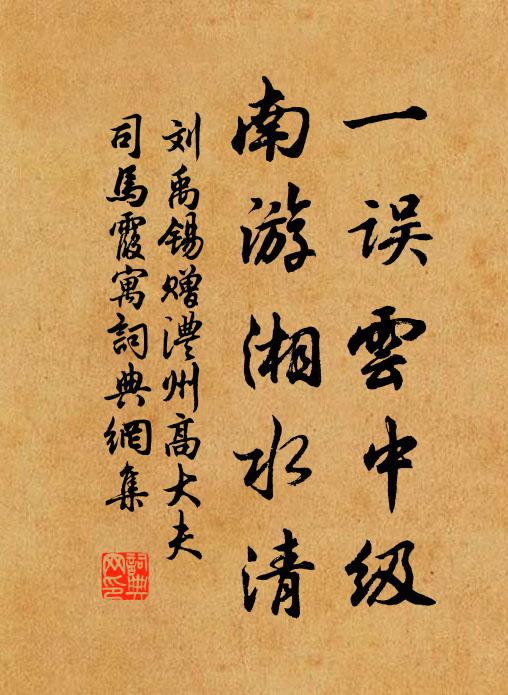 一误雲中级
南游湘水清
刘禹锡赠澧州高大夫
司馬霞寓詞典網集
詞典网印